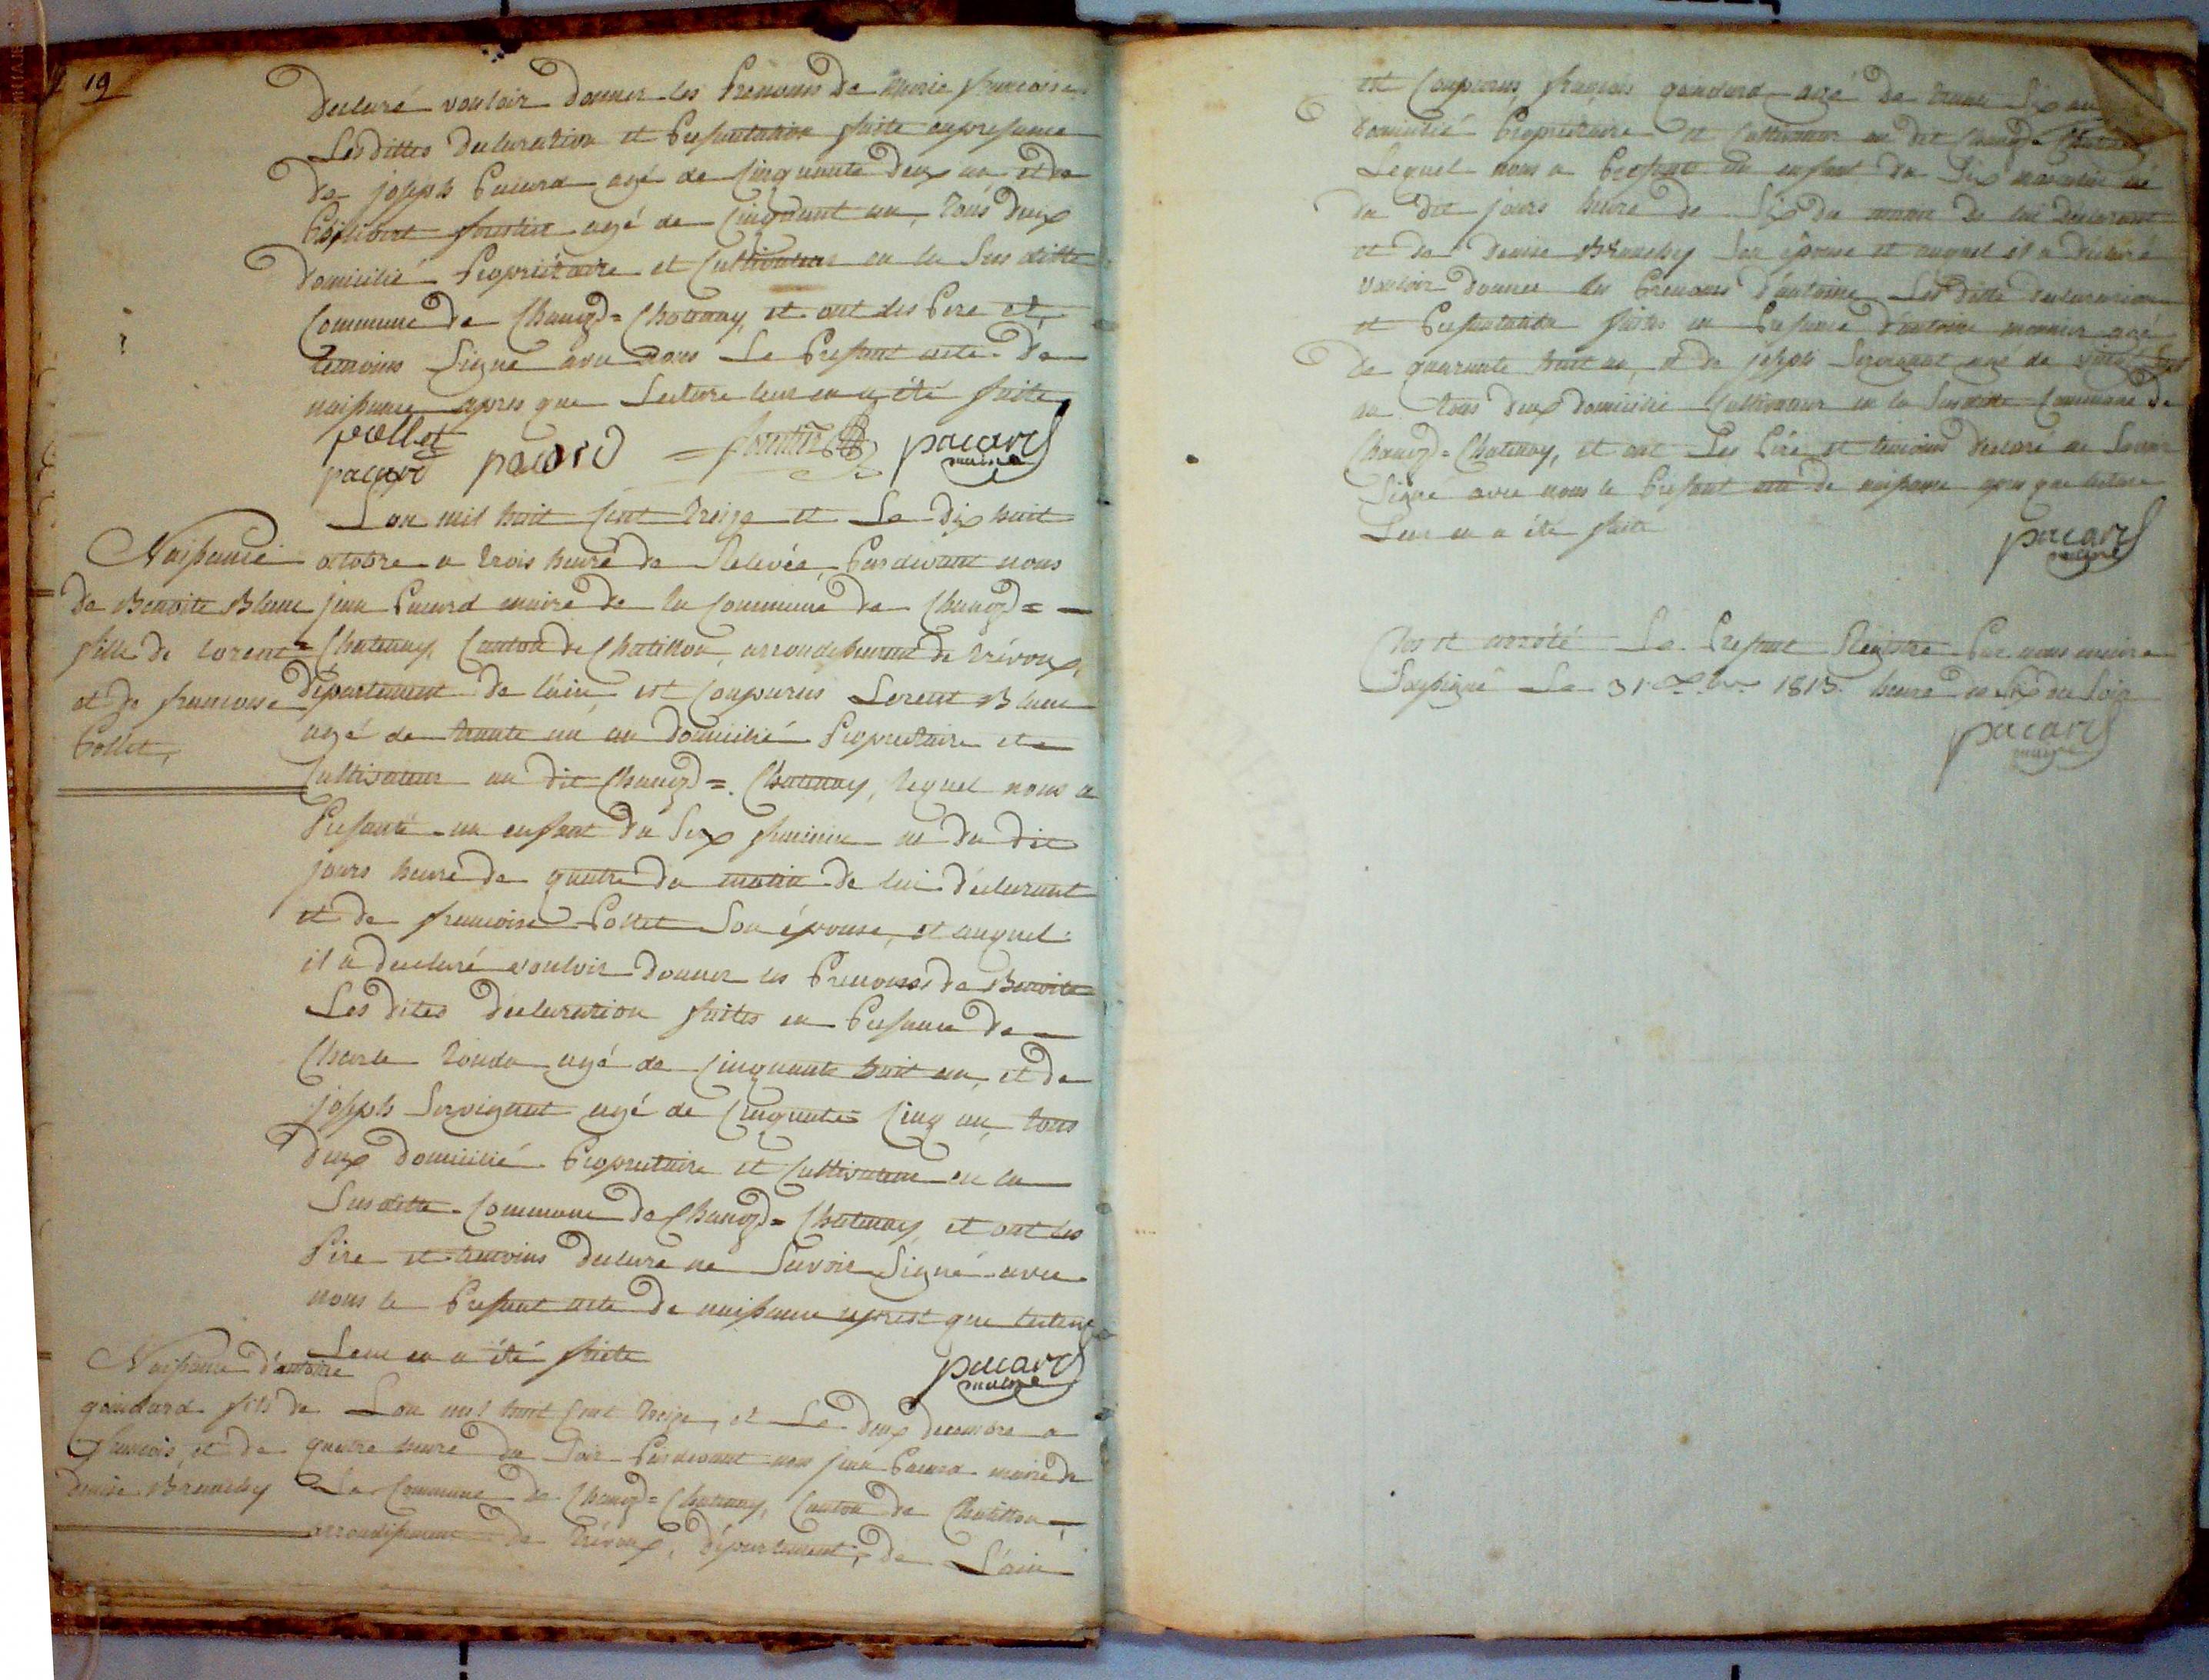 19
declaré vouloir donner les Prenoms de Marie francoise
Les dittes declaration et Presantation faite en presance
de joseph Pacard agé de Cinquante deux an et de
foustier agé de Cinquant an, tous deux
domicilié Propriétaire et Cultivateur en la Sus ditte
Commune de Chanoz=Chatenay, et ont les Pere et
temoins Signé avec nous Le Presant acte de
naissance apres que Lecture leur en a été faite
pollet
pacard pacard foustier pacard
maire
Naissance
de Benoite Blanc
fille de lorent
et de francoise
Pollet,
L'an mil huit Cent treize et Le dix huit
octobre a trois heure de Relevée, Pardevant nous
jean Pacard maire de la Commune de Chanoz=
Chatenay, Canton de Chatillon, arrondissement de trévoux,
département de l'ain, est Comparus Lorent Blanc
agé de trante un an domicilié Propriétaire et
Cultivateur au dit Chanoz=Chatenay, lequel nous a
Presanté un enfant du Sex feminin né du dit
jours heure de quatre du matin de lui déclarant
et de francoise Pollet Son épouse, et auquel
il a declaré vouloir donner les Prenoms de Benoite
Les dites déclaration faites en Presance de
Charle tondu agé de Cinquante huit an, et de
joseph Servignat agé de Cinquante Cinq an, tous
deux domicilié Propriétaire et Cultivateur en la
Susditte Commune de Chanoz=Chatenay, et ont les
Pere et temoins declaré ne Savoir Signé avec
nous le Presant acte de naissance aprest que lecture
Leur en a été faite
pacard
maire
Naissance d'antoine
goindard fils de
francois, et de
denise Branchy
L'an mil huit Cent treize, et Le deux decembre a
quatre heure du Soir Pardevant nous jean Pacard maire de
La Commune de Chanoz=Chatenay, Canton de Chatillon,
arrondissement de trévoux, département, de L'ain
est Comparus françois goindard agé de trante Six an
domicilié Propriétaire et Cultivateur au dit Chanoz=
Lequel nous a Presanté un enfant du Sex masculin né
du dit jours heure de Six du matin de lui déclarant
et de denise Branchy Son épouse et auquel il a déclaré
vouloir donner les Prenoms d'antoine Les ditte declaration
et Presantation faites en Presance d'antoine monnier agé
de quarante huit an, et de joseph Servignat agé de vingt Sept
an tous deux domicilié Cultivateur en la Susditte Commune de
Chanoz=Chatenay, et ont Les Pere et temoins declaré ne Savoir
Signé avec nous le Presant acte de naissance apres que lecture
Leur en a été faite
pacard
maire
Clos et arrété Le Presant Registre Par nous maire
Soussigné Le 31 Xbre 1813 heure de Six du Soir
pacard
maire